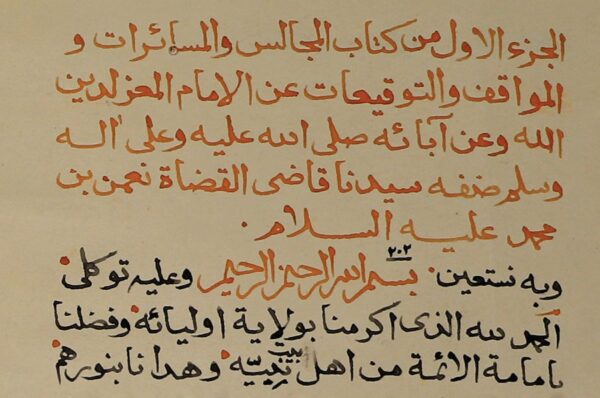 الجزء الاول من كتاب المجالس والمسائرات و
المواقف والتوقيعات عن الامام المعز لدين
الله وعن آبائه صلى الله عليه وعلى اله
وسلم صنفه سيدنا قاضى القضاة نعمن بن
محمد عليه السلام .
٢٠٢
وبه نستعين . بسم الله الرحمن الرحيم وعليه توكلى .
الحمد لله الذى اكرمنا بولاية اوليائه وفضلنا
بامامة الائمة من اهل بيت نبيّه وهدانا بنورهم